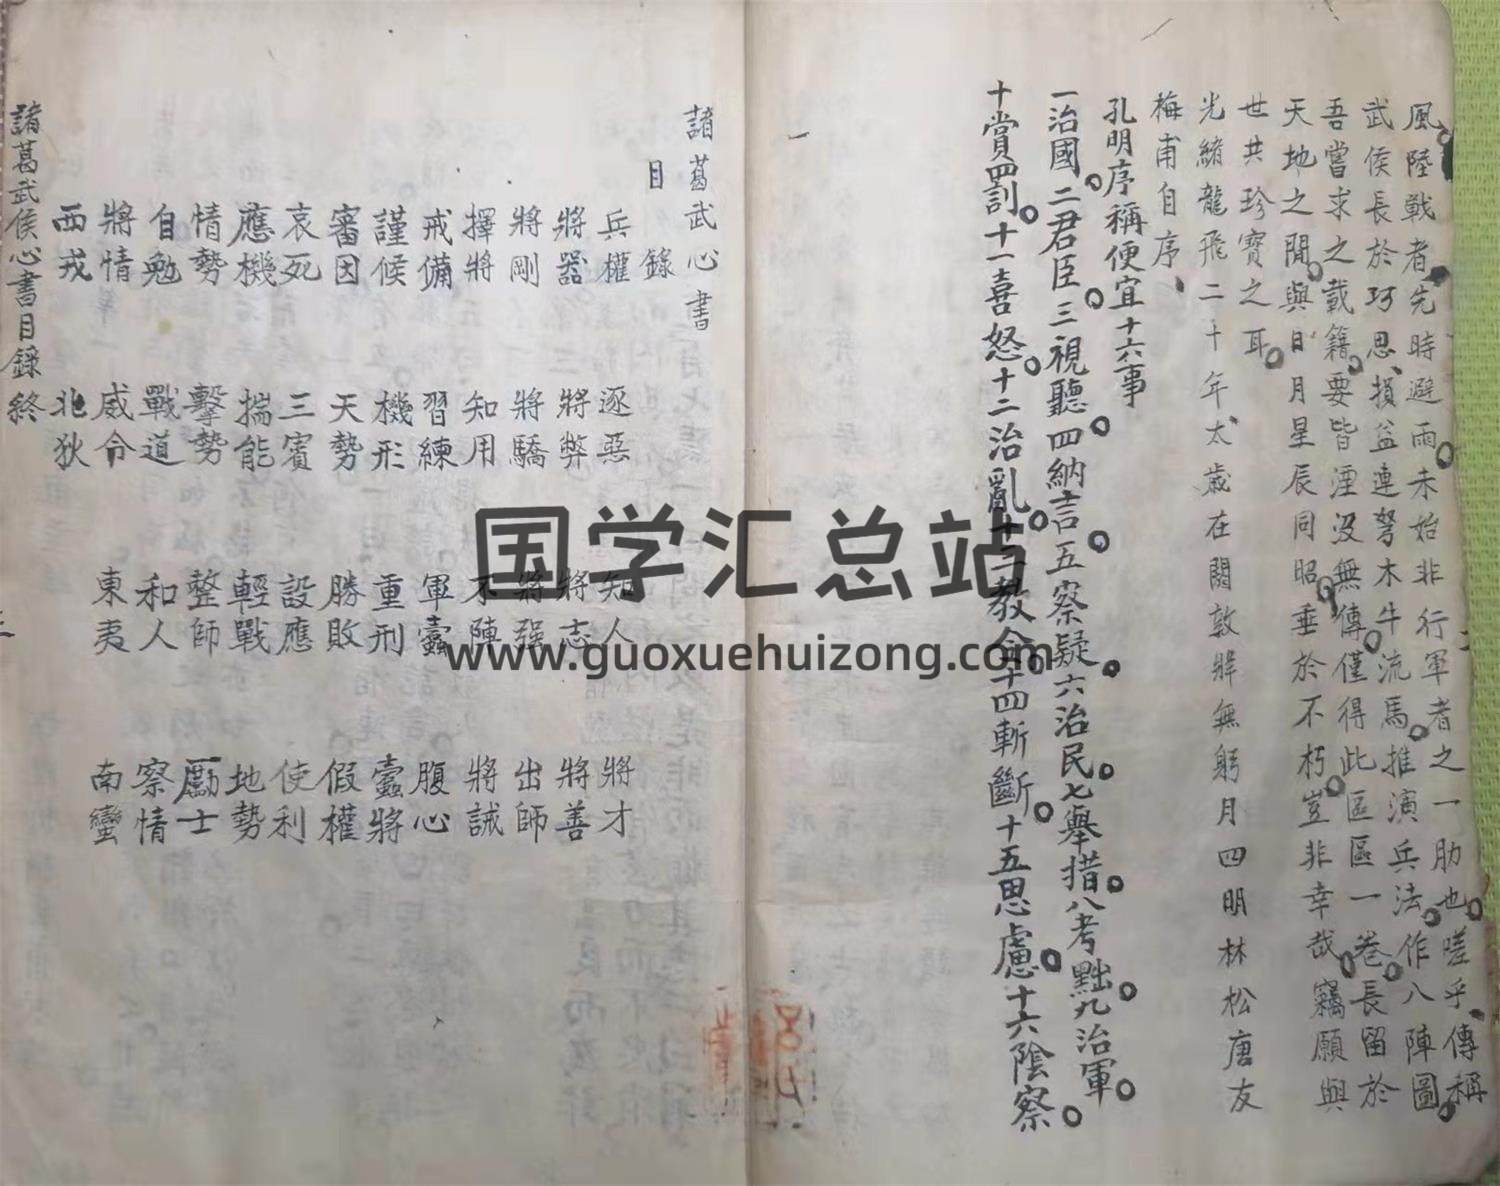 風陸戰者先時避雨未始非行軍者之一助也嗟乎傳稱
武侯長於巧思損益連弩木牛流馬推演兵法作八陣圖
吾嘗求之載籍要皆湮沒無傳僅得此區區一卷長留於
天地之間與日月星辰同昭垂於不朽豈非幸哉竊願與
世共珍寶之耳
光緒龍飛二十年太歲在閼敦牂無躬月四明林松唐友
梅甫自序
孔明序稱便宜十六事
一治國二君臣三視聽四納言五察疑六治民七舉措八考黜九治軍
十賞罰十一喜怒十二治亂十三教令十四斬斷十五思慮十六陰察
諸葛武心書
目錄
兵權 逐惡 知人 將才
將器 將弊 將志 將善
將剛 將驕 將强 出師
擇將 知用 不陣 將誡
戒備 習練 軍蠹 腹心
謹候 機形 重刑 蠹將
審因 天勢 勝敗 假權
哀死 三賓 設應 使利
應機 揣能 輕戰 地勢
情勢 擊勢 整師 勵士
自勉 戰道 和人 察情
將情 威令 東夷 南蠻
西戎 北狄
諸葛武侯心書目錄終
国学汇总站
www.guoxuehuizong.com